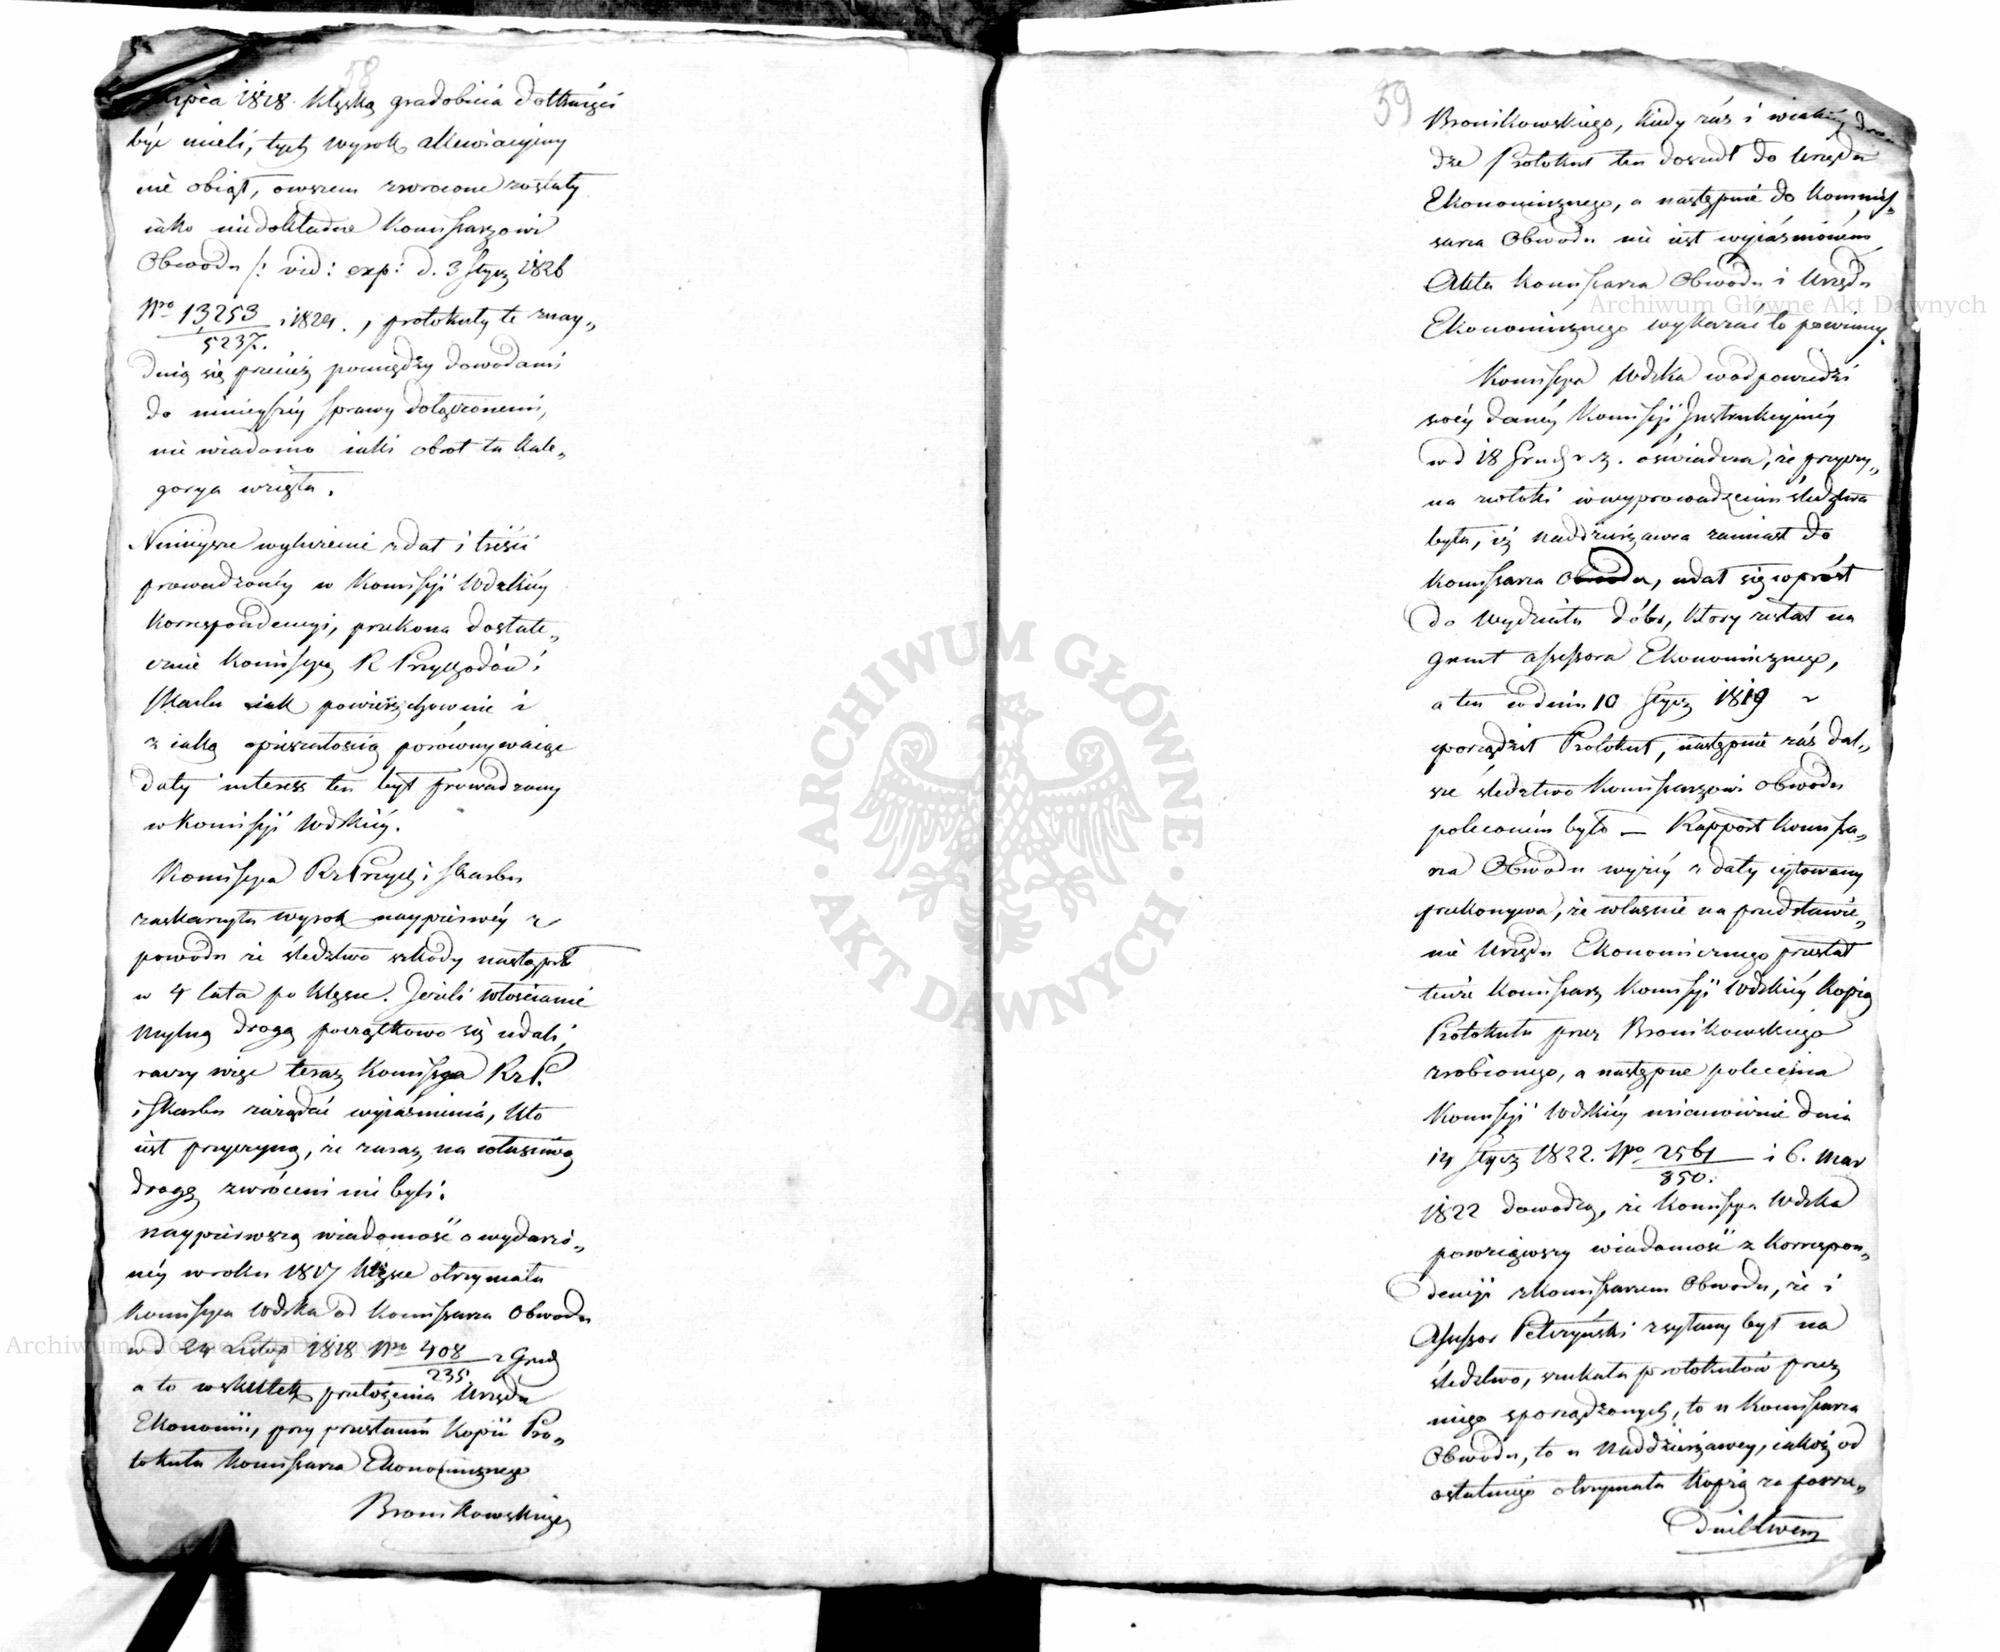 58
Lipca 1818. klęską gradobicia dotknięci
być mieli, tych wyrok allewiacyjny
nie obiął, owszem zwrocone zostały
iako niedokładne Kommissarzowi
Obwodu /: vid: exp: d. 3 Stycz 1826
Nro 13,253 i 1824., protokuły te znay„
5237.
duią się przecież pomiędzy dowodami
do ninieyszéy sprawy dołączonemi,
nie wiadomo iaki obrot ta kate„
gorya wzięła.
Ninieysze wyłuszczenie z dat i treści
prowadzonéy w Kommissyi Wdzkiéy
Korrespondencyi, przekona dostate„
cznie Kommissyą R Przychodów i
Skarbu iak powierzchownie i
z iaką opieszałością porównywaiąc
daty interess ten był prowadzony
w Kommissyi Wdzkiéy.
Kommissya Rz Przych i Skarbu
zaskarzyła wyrok naypierwéy z
powodu że śledztwo szkody nastąpiło
w 4 lata po klęsce. Jeżeli włościanie
mylną drogą początkowo się udali,
raczy więc teraz Kommissya Rz P.
i Skarbu zażądać wyiaśnienia, kto
iest przyczyną, że zaraz na właściwą
drogę zwróceni nie byli.
Naypierwszą wiadomość o wydarzo„
néy w roku 1817 klęsce otrzymała
Kommissya Wdzka od Kommissarza Obwodu
w d 24 Listop 1818 Nro 408 z Grud
235
a to w skutek przełożenia Urzędu
Ekonomii, przy przesłaniu Kopii Pro„
tokułu Kommissarza Ekonomicznego
Bronikowskiego
59
Bronikowskiego, kiedy zaś i w iakiéy dro„
dze Protokuł ten doszedł do Urzędu
Ekonomicznego, a następnie do Kommis„
sarza Obwodu nie iest wyiaśnionem
Akta Kommissarza Obwodu i Urzędu
Ekonomicznego wykazać to powinny.
Kommissya Wdzka w odpowiedzi
swéy danéy Kommissyi Instrukcyinéy
w d 18 Grud r. z. oświadcza, że przyczy„
na zwłoki w wyprowadzeniu śledztwa
była, iż naddzierżawca zamiast do
Kommissarza Obwodu, udał się wprost
do Wydziału dóbr, ktory zesłał na
grunt Assessora Ekonomicznego,
a ten w dniu 10 Stycz 1819 r
sporządził Protokuł, następnie zaś dal„
sze śledztwo Kommissarzowi Obwodu
poleconem było — Rapport Kommissa„
rza Obwodu wyżéy z daty cytowany
przekonywa, że właśnie na przedstawie„
nie Urzędu Ekonomicznego przesłał
tenże Kommissarz Kommissyi Wdzkiéy kopią
Protokułu przez Bronikowskiego
zrobionego, a następne polecenia
Kommissyi Wdzkiéy mianowicie dnia
14 Stycz 1822. Nro 2561 i 6. Mar
850.
1822 dowodzą, że Kommissya Wdzka
powziąwszy wiadomość z Korrespon„
dencyi z Kommissarzem Obwodu, że i
Assessor Pełczyński zsyłany był na
śledztwo, szukała protokułów przez
niego sporządzonych, to u Kommissarza
Obwodu, to u Naddzierżawcy, iakoż od
ostatniego otrzymała kopią za posre„
dnictwem